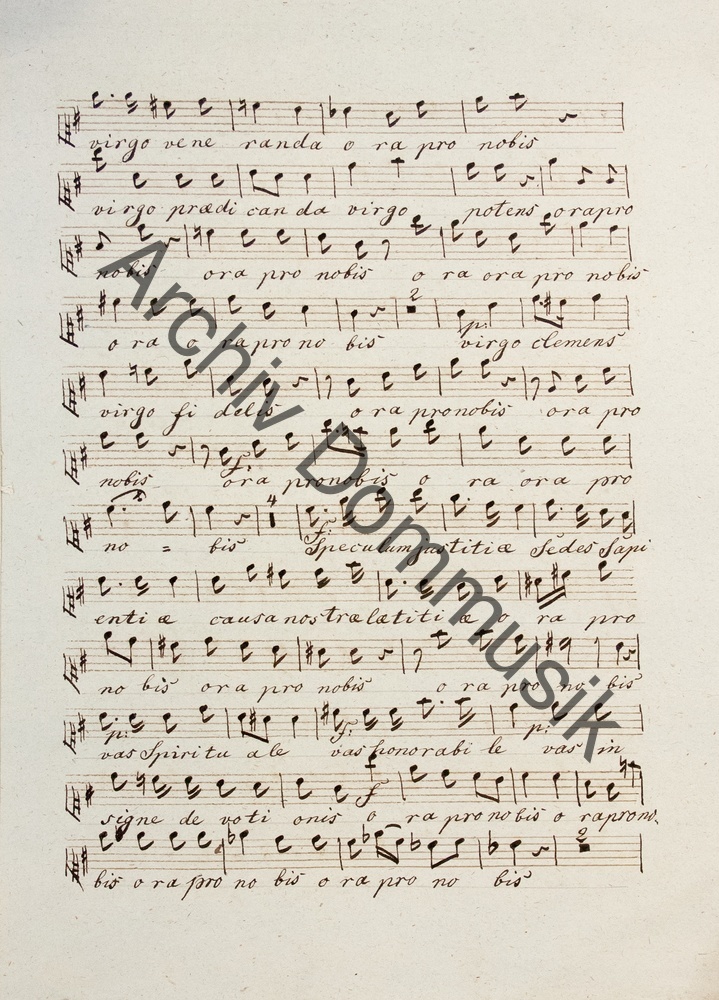 virgo vene randa o ra pro nobis
virgo prædi can da virgo potens orapro
nobis ora pro nobis o ra ora pro nobis
2
p:
o ra o rapro no bis virgo clemens
virgo fi delis ora pronobis ora pro
f:
nobis ora pronobis o ra ora pro
4
f:
no = bis Speculum justitiæ Sedes Sapi
entiæ causa nostræ lætitiæ o ra pro
no bis ora pro nobis o ra pro no bis
p: f: p:
vas Spiritu ale vas honorabi le vas in
f
signe de voti onis o ra pro nobis o rapro no,
2
bis o ra pro no bis o ra pro no bis
Archiv Dommusik